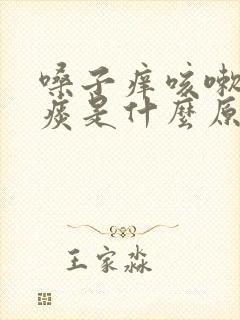 嗓子痒咳嗽
痰是什麼原
王家淼